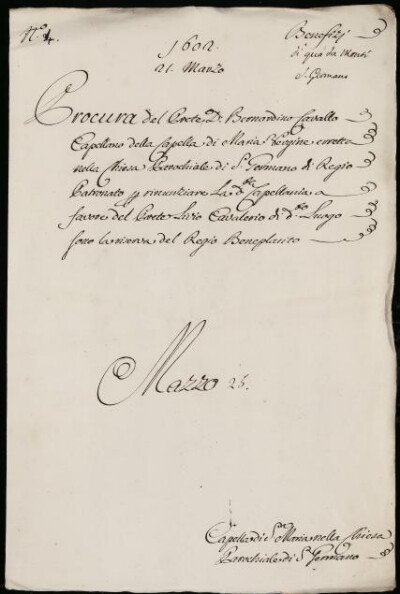 N.º 4.
Benefizj
di quà da Monti
S. Germano
1602
21. Marzo
Procura del Prete D. Bernardino Cavallo
Capellano della Capella di Maria Vergine eretta
nella Chiesa Parochiale di S. Germano di Regio
Patronato p rinunciare La d.ª Capellania a
favore del Prete Livio Cavalerio di d.º Luogo
sotto la riserva del Regio Beneplacito
Mazzo 25.
Capella di S. Maria nella Chiesa
Parochiale di S. Germano